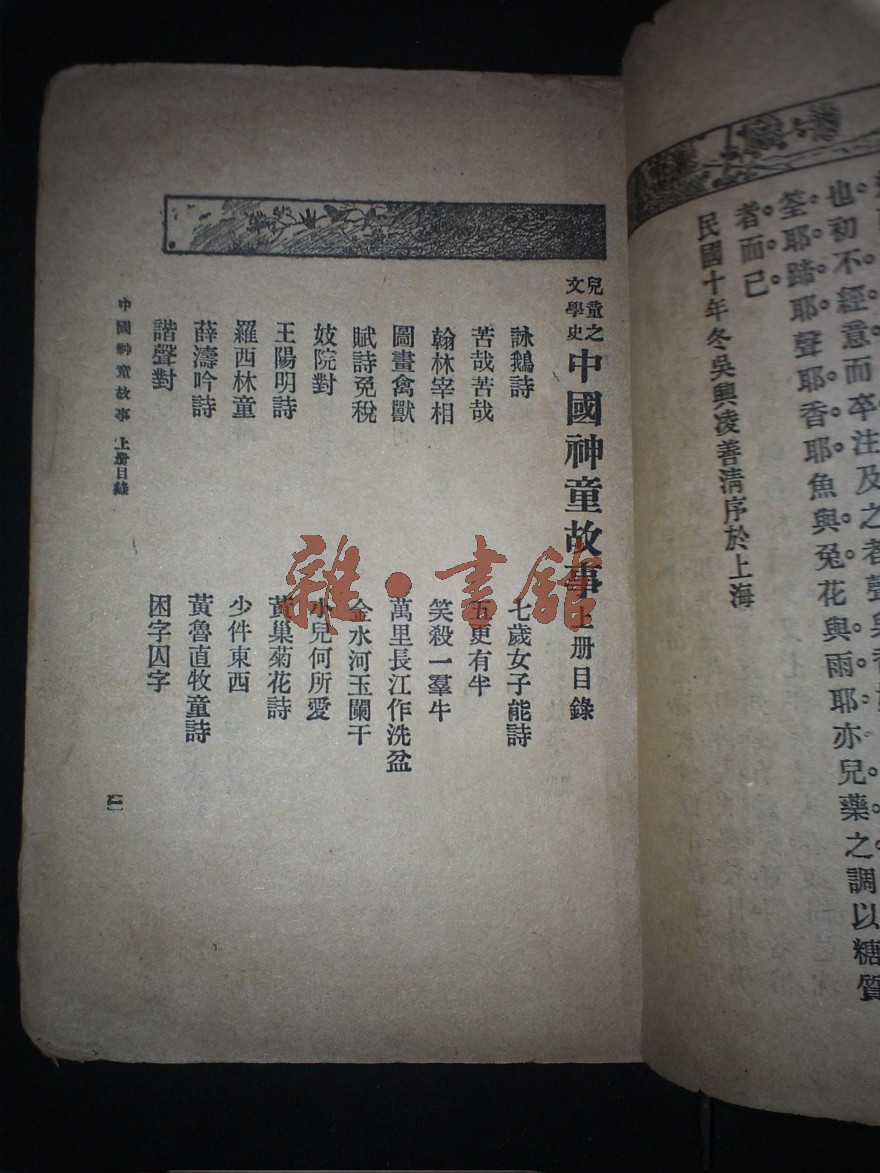 也初不經意而卒注及之者聲與香
筌耶。蹄耶。聲耶。香耶。魚與兔。花與雨耶。亦兒藥之調以糖質
者而已。
民國十年冬吳興凌善清序於上海
兒童之文學史 中國神童故事 上册目錄
詠鵝詩 七歲女子能詩
苦哉苦哉 五更有半
翰林宰相 笑殺一羣牛
圖畫禽獸 萬里長江作洗盆
賦詩免稅 金水河玉闌干
妓院對 小兒何所愛
王陽明詩 黃巢菊花詩
羅西林童 少件東西
薛濤吟詩 黃魯直牧童詩
諧聲對 困字囚字
中國神童故事 上册目錄
雜·書館